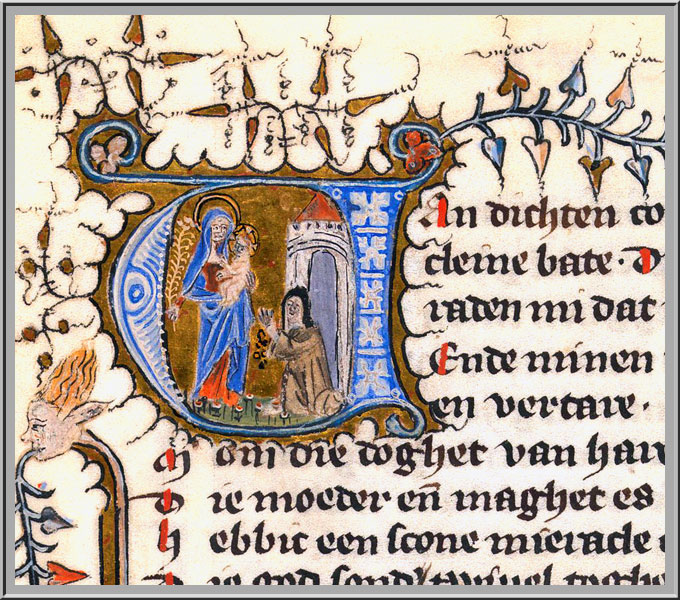 An dichten co
cleine bate · D
raden mi dat
Ende minen
en vertare ·
M om die doghet van har
D ie moeder en̄ maghet es
H ebbic een scone mieracle
D ie god sond' twiuel toghe